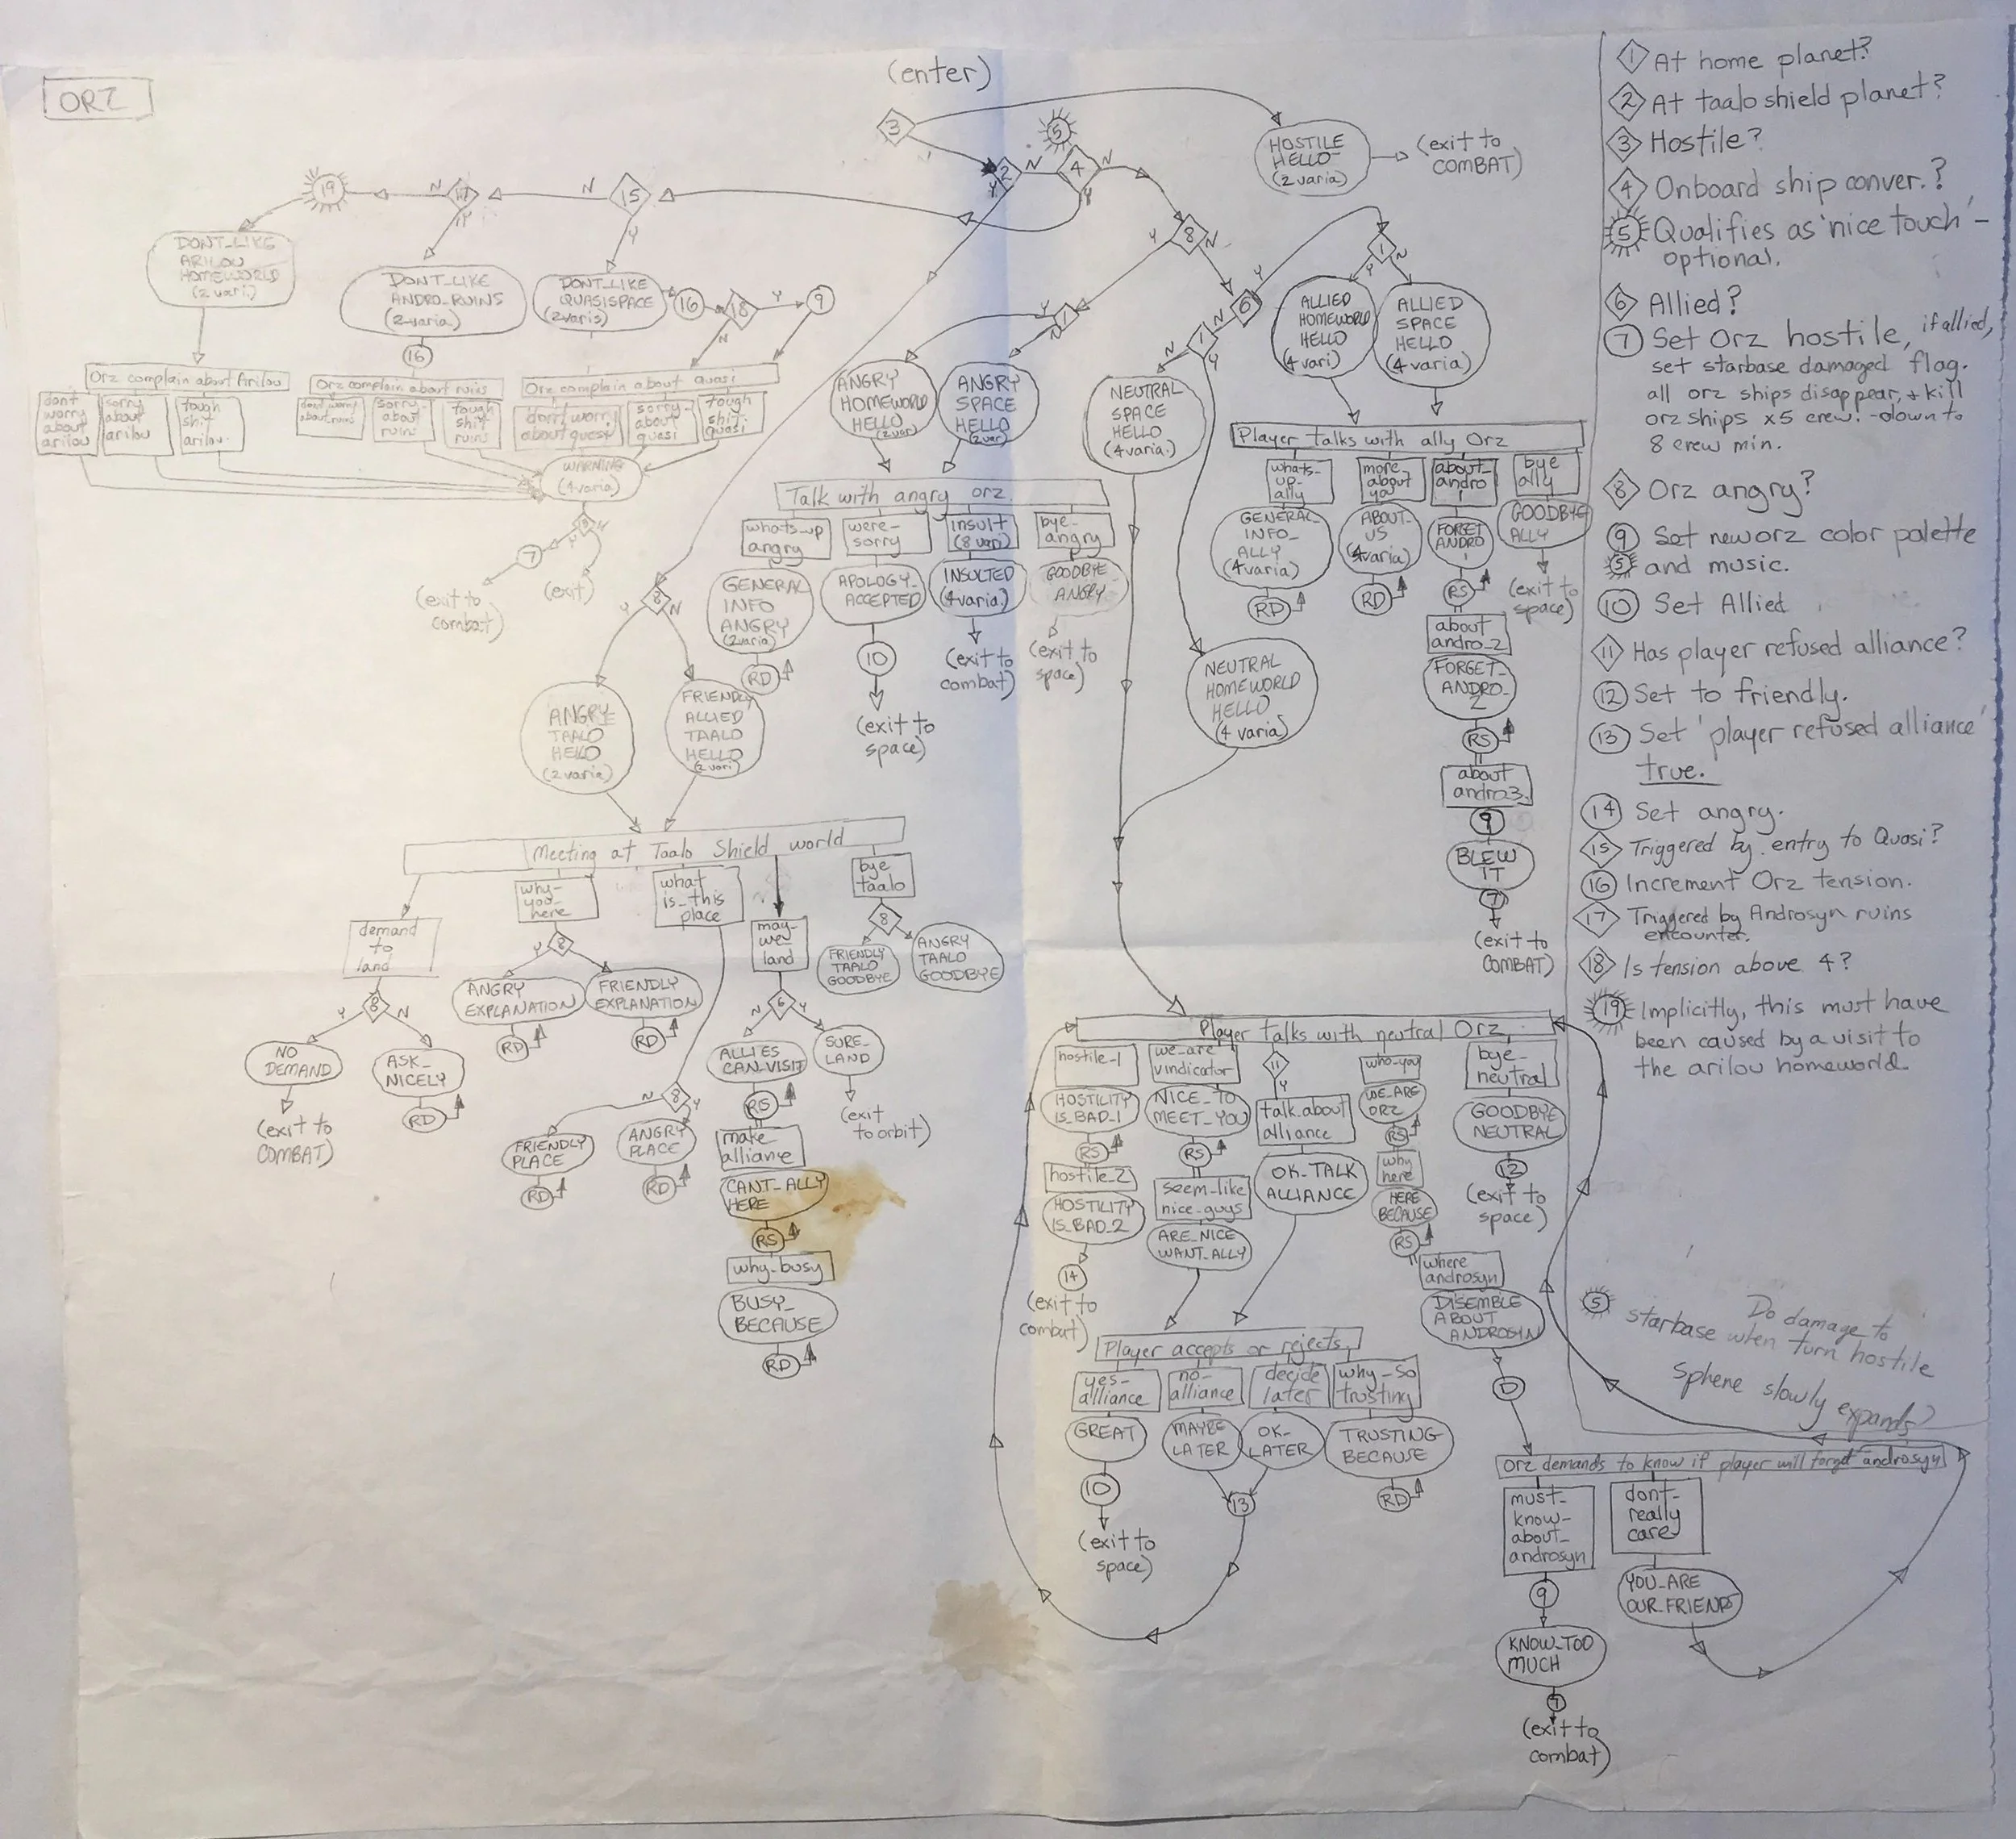 ORZ
(enter)
3
5
2
N
Y
4
N
Y
HOSTILE
HELLO-
(2 varia)
(exit to
COMBAT)
19
N
17
Y
N
15
Y
8
Y
N
DONT_LIKE
ARILOU
HOMEWORLD
(2 vari.)
DONT_LIKE
ANDRO_RUINS
(2 varia)
16
DONT_LIKE
QUASISPACE
(2 varis)
16
18
Y
N
9
Orz complain about Arilou
dont
worry
about
arilou
sorry
about
arilou
tough
shit
arilou.
Orz complain about ruins
dont worry
about ruins
sorry
about
ruins
tough
shit
ruins
Orz complain about quasi
dont worry
about quasi
sorry
about
quasi
tough
shit
quasi
WARNING
(4 varia)
Y
7
(exit to
combat)
(exit)
1
Y
N
ANGRY
HOMEWORLD
HELLO
(2 var)
ANGRY
SPACE
HELLO
(2 var)
Talk with angry orz.
whats_up
angry
GENERAL
INFO
ANGRY
(2 varia)
RD
were-
sorry
APOLOGY_
ACCEPTED
10
(exit to
space)
insult
(8 vari)
INSULTED
(4 varia.)
(exit to
combat)
bye-
angry
GOODBYE
ANGRY
(exit to
space)
6
Y
N
1
N
Y
NEUTRAL
SPACE
HELLO
(4 varia.)
NEUTRAL
HOMEWORLD
HELLO
(4 varia)
1
Y
N
ALLIED
HOMEWORLD
HELLO
(4 vari)
ALLIED
SPACE
HELLO
(4 varia)
Player talks with ally Orz
whats-
up-
ally
GENERAL_
INFO_
ALLY
(4 varia)
RD
more_
about
ya
ABOUT-
US
(4 varia)
RD
about_
andro
1
FORGET
ANDRO
1
RS
about
andro_2
FORGET_
ANDRO_
2
RS
about
andro3.
9
BLEW
IT
7
(exit to
COMBAT)
bye
ally
GOODBYE
ALLY
(exit to
space)
8
Y
N
ANGRY
TAALO
HELLO
(2 varia)
FRIENDLY
ALLIED
TAALO
HELLO
(2 vari)
Meeting at Taalo Shield world
demand
to
land
8
Y
N
NO
DEMAND
(exit to
COMBAT)
ASK_
NICELY
RD
why-
you-
here
8
Y
ANGRY
EXPLANATION
RD
FRIENDLY
EXPLANATION
RD
what
is_this
place
8
N
Y
FRIENDLY
PLACE
RD
ANGRY
PLACE
RD
may-
we-
land
6
N
Y
ALLIES
CAN_VISIT
RS
make_
alliance
CANT_ALLY
HERE
RS
why-busy
BUSY_
BECAUSE
RD
SURE_
LAND
(exit
to orbit)
bye
taalo
8
FRIENDLY
TAALO
GOODBYE
ANGRY
TAALO
GOODBYE
Player talks with neutral Orz.
hostile-1
HOSTILITY
IS_BAD_1
RS
hostile_2
HOSTILITY
IS_BAD_2
14
(exit to
combat)
we-are
vindicator
NICE_TO
MEET_YOU
RS
seem-like
nice-guys
ARE_NICE
WANT_ALLY
11
Y
talk.about
alliance
OK-TALK
ALLIANCE
who-you
WE_ARE
ORZ
RS
why
here
HERE
BECAUSE
RS
where
androsyn
DISEMBLE
ABOUT
ANDROSYN
D
bye-
neutral
GOODBYE
NEUTRAL
12
(exit to
space)
Player accepts or rejects.
yes-
alliance
GREAT
10
(exit to
space)
no-
alliance
MAYBE
LATER
decide
later
OK-
LATER
13
why-so
trusting
TRUSTING
BECAUSE
RD
Orz demands to know if player will forget androsyn
must-
know-
about-
androsyn
9
KNOW_TOO
MUCH
7
(exit to
combat)
dont-
really
care
YOU_ARE
OUR_FRIEND
5
Do damage to
starbase when turn hostile
sphere slowly expands?
1 At home planet?
2 At taalo shield planet?
3 Hostile?
4 Onboard ship conver.?
5 Qualifies as 'nice touch' -
optional.
6 Allied?
7 Set Orz hostile, if allied,
set starbase damaged flag.
all orz ships disappear, + kill
orz ships x5 crew! -down to
8 crew min.
8 Orz angry?
9 Set new orz color palette
5 and music.
10 Set Allied
11 Has player refused alliance?
12 Set to friendly.
13 Set 'player refused alliance'
true.
14 Set angry.
15 Triggered by entry to Quasi?
16 Increment Orz tension.
17 Triggered by Androsyn ruins
encounter.
18 Is tension above 4?
19 Implicitly, this must have
been caused by a visit to
the arilou homeworld.